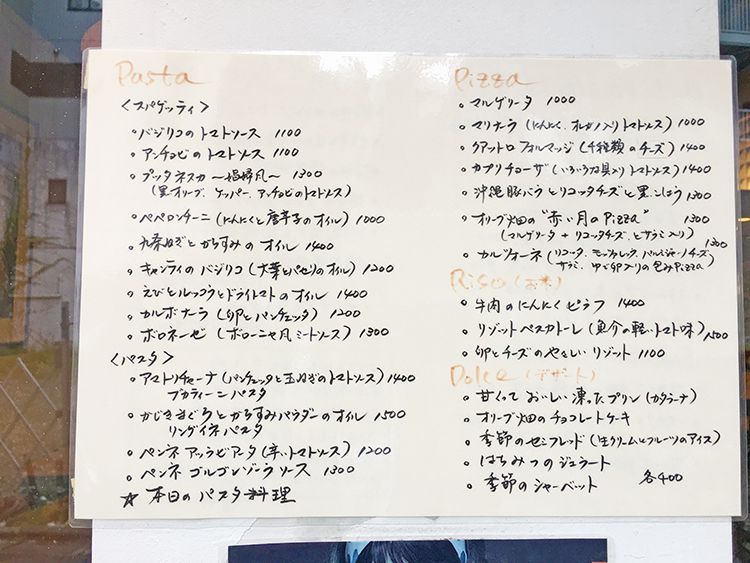 Pasta
<スパゲッティ>
・バジリコのトマトソース 1100
・アンチョビのトマトソース 1100
・プッタネスカ〜娼婦風〜 1300
(黒オリーブ、ケッパー、アンチョビのトマトソース)
・ペペロンチーニ(にんにくと唐辛子のオイル) 1000
・九条ねぎとからすみのオイル 1400
・キャンティのバジリコ(大葉とパセリのオイル) 1200
・えびとルッコラとドライトマトのオイル 1400
・カルボナーラ(卵とパンチェッタ) 1200
・ボロネーゼ(ボローニャ風ミートソース) 1300
<パスタ>
・アマトリチャーナ(パンチェッタと玉ねぎのトマトソース) 1400
ブカティーニパスタ
・かじきまぐろとからすみパウダーのオイル 1500
リングイネパスタ
・ペンネアッラビアータ(辛いトマトソース) 1200
・ペンネゴルゴンゾーラソース 1300
☆本日のパスタ料理
Pizza
・マルゲリータ 1000
・マリナーラ(にんにく、オレガノ入りトマトソース) 1000
・クアットロフォルマッジ(4種類のチーズ) 1400
・カプリチョーザ(いろいろな具入りトマトソース) 1400
・沖縄豚バラとリコッタチーズと黒こしょう 1300
・オリーブ畑の"赤い月のPizza" 1300
(マルゲリータ+リコッタチーズ、とサラミ入り)
・カルツォーネ(リコッタ、モッツァレッラ、パルミジャーノチーズ 1300
サラミ、ゆで卵入りの包みPizza)
Riso(お米)
・牛肉のにんにくピラフ 1400
・リゾットペスカトーレ(魚介の軽いトマト味) 1500
・卵とチーズのやさしいリゾット 1100
Dolce(デザート)
・甘くっておいしい凍ったプリン(カタラーナ)
・オリーブ畑のチョコレートケーキ
・季節のセミフレッド(生クリームとフルーツのアイス)
・はちみつのジェラート
・季節のシャーベット 各400